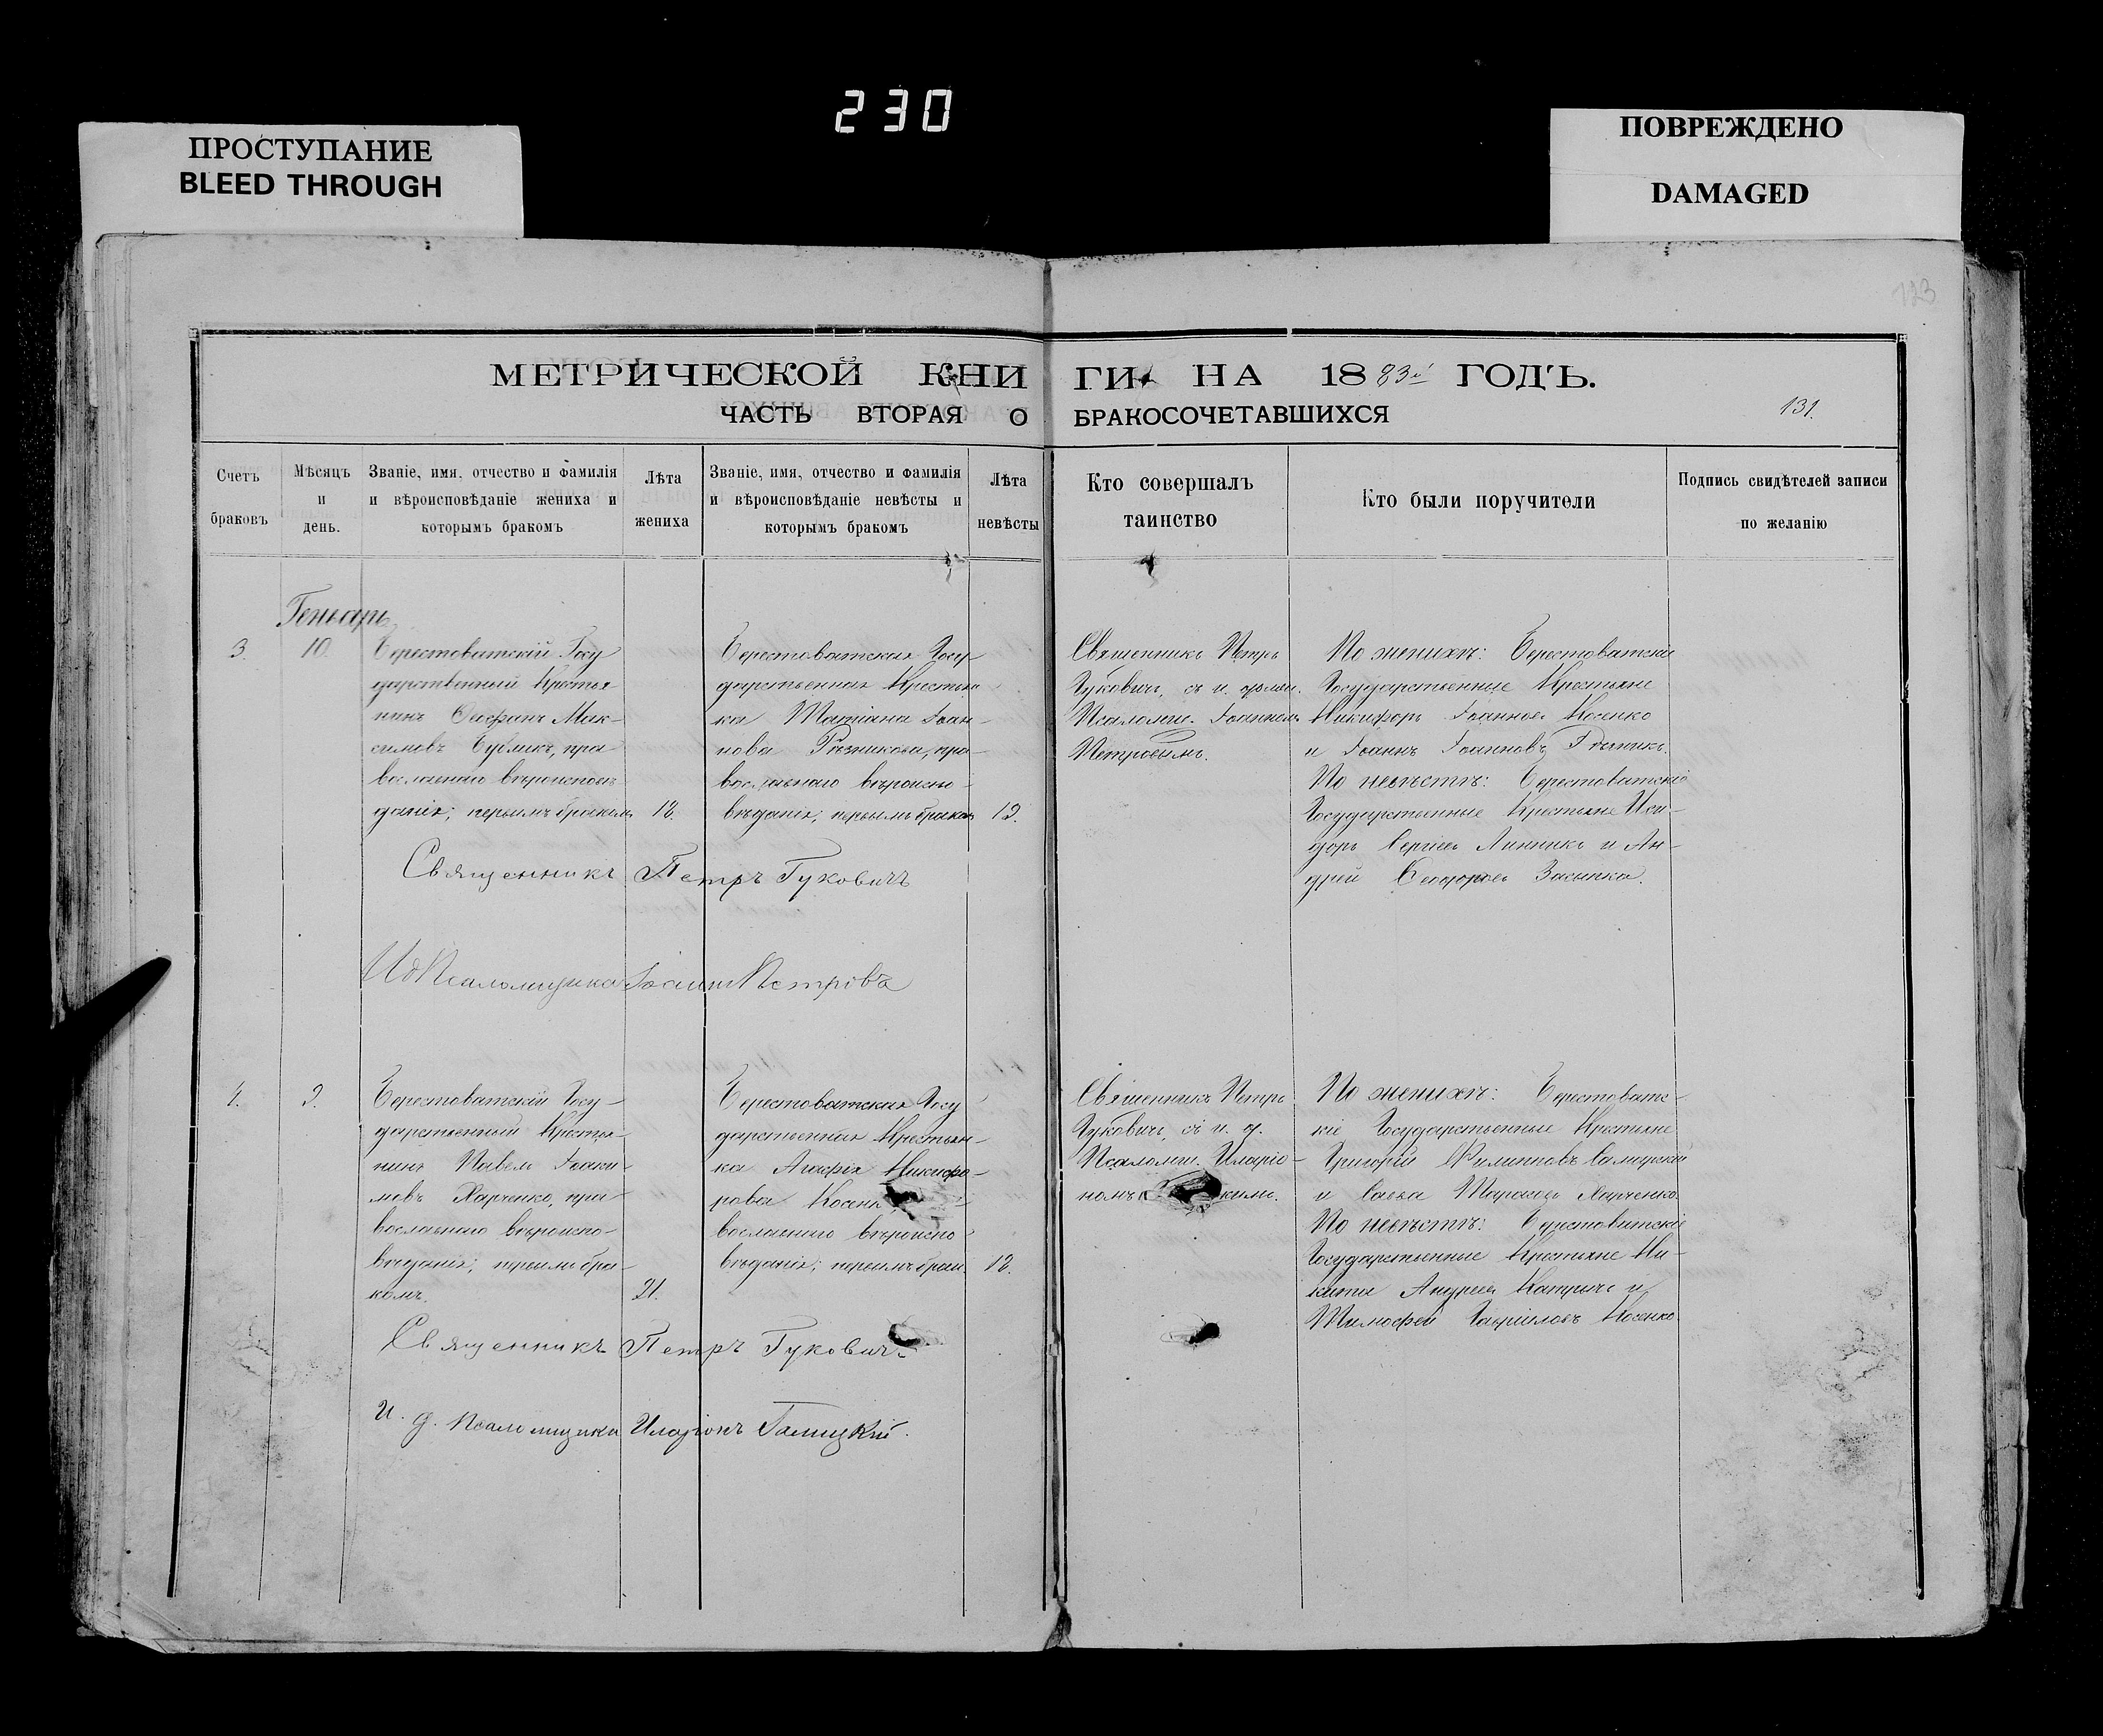 230
ПРОСТУПАНИЕ
BLEED THROUGH
ПОВРЕЖДЕНО
DAMAGED
123
МЕТРИЧЕСКОЙ КНИГИ НА 1883й ГОДЪ.
ЧАСТЬ ВТОРАЯ О БРАКОСОЧЕТАВШИХСЯ
131.
Счетъ
браковъ
Мѣсяцъ
и
день.
Званіе, имя, отчество и фамилія
и вѣроисповѣданіе жениха и
которымъ бракомъ
Лѣта
жениха
Званіе, имя, отчество и фамилія
и вѣроисповѣданіе невѣсты и
которымъ бракомъ
Лѣта
невѣсты
Кто совершалъ
таинство
Кто были поручители
Подпись свидѣтелей записи
по желанію
Геньарь
3.
10.
Берестоватскій Госу
дарственный Крестья
нинъ Ѳеофанъ Мак-
симовъ Бубликъ, пра
вославнаго вѣроисповѣ
данія; первымъ бракомъ
18.
Берестоватская Госу-
дарственная Крестьян
ка Татіана Іоан-
нова Рѣзникова, пра-
вославнаго вѣроиспо-
вѣданія; первымъ бракомъ
19.
Священникъ Петръ
Гуковичъ, съ и.
Псаломщ. Іоанномъ
Петровымъ.
По женихѣ: Берестоватскіе
Государственные Крестьяне
Никифоръ Іоанновъ Косенко
и Іоаннъ Іоанновъ Рѣзникъ.
По невѣстѣ: Берестоватскіе
Государственные Крестьяне Иси-
доръ Сергіевъ Линникъ и Ан-
дрей Ѳеодоровъ
Священникъ Петръ Гуковичъ
Ид Псаломщика Іоаннъ Петровъ
4.
9.
Берестоватскій Госу-
дарственный Крестья-
нинъ Павелъ Іоаки-
мовъ Харченко, пра
вославнаго вѣроиспо-
вѣданія; первымъ бра-
комъ.
21.
Берестоватская Госу
дарственная Крестьян-
ка Агафія Никифо-
рова Косенк
вославнаго вѣроиспо
вѣданія; первымъ брак.
18.
Священникъ Петръ
Гуковичъ, съ и. д.
Псаломщ. Иларіо-
номъ кимъ.
По женихѣ: Берестоватс-
кіе Государственные Крестьяне
Григорій Филипповъ
и Савва Тарасовъ Харченко.
По невѣстѣ: Берестоватскіе
Государственные Крестьяне Ни-
кита Андреевъ и
Тимофей Гавріиловъ Косенко.
Священникъ Петръ Гуковичъ
И. д. Псаломщика Иларіонъ Галицкій.